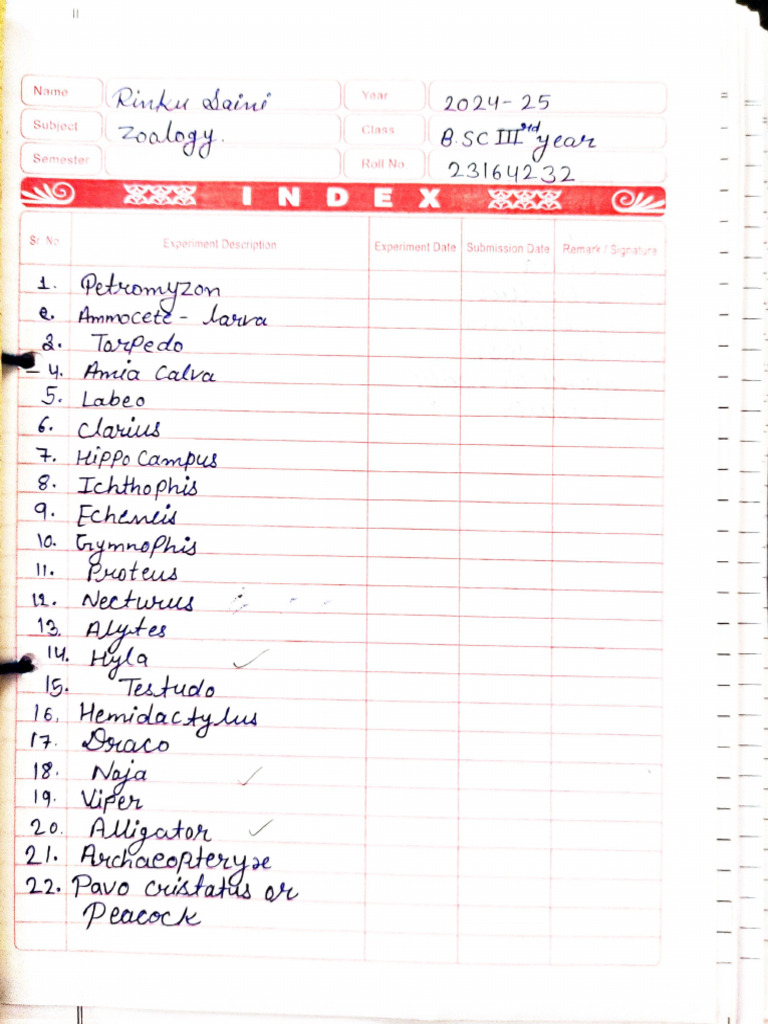 Name Rinku Saini Year 2024-25
Subject Zoalogy. Class B.SC III rd year
Semester Roll No. 23164232
INDEX
Sr. No. Experiment Description Experiment Date Submission Date Remark / Signature
1. Petromyzon
2. Ammocete - larva
3. Torpedo
4. Amia Calva
5. Labeo
6. Clarius
7. Hippo Campus
8. Ichthophis
9. Echeneis
10. Gymnophis
11. Proteus
12. Necturus
13. Alytes
14. Hyla
15. Testudo
16. Hemidactylus
17. Draco
18. Naja
19. Viper
20. Alligator
21. Archaeopteryx
22. Pavo cristatus or
Peacock